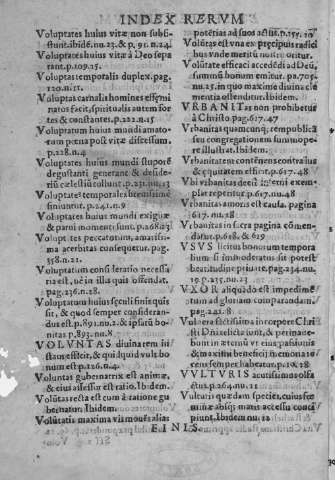 INDEX RERVM
Voluptates huius vitæ non subsi-
stunt. ibidẽ. nu. 23. & p. 91. n. 24.
Voluptates huius vitæ à Deo sepa
rant. p. 109. 25.
Voluptas temporalis duplex. pag.
120. n. 21.
Voluptas carnalis homines effœmi
natos facit, spiritualis autem for
tes & constantes. p. 222. n. 15
Voluptatum huius mundi amato-
rum pœna post vitæ discessum.
p. 228. n. 4
Voluptates huius mundi stuporẽ
degustanti generant & deside-
riũ cælestiũ tollunt. p. 231. nu. 13
Voluptates temporales breuissime
finiuntur. p. 241. n. 9
Voluptates huius mundi exiguæ
& parui momenti sunt. p. 268. 23
Voluptates peccatorum, amarissi-
ma acerbitas consequetur. pag.
358. n. 21.
Voluptatum consideratio necessa
ria est, nè in illis quis offendat.
pag. 236. n. 28.
Voluptatum huius sæculi finis quis
sit, & quod semper consideran-
dus est p. 891. nu. 2. & ipsũ bo-
nitas p. 893. nu. 8
VOLVNTAS diuina rem iu
stam efficit, & quidquid vult bo
num est p. 126. n. 4.
Voluntas gubernatrix est animæ,
& eius assessor est ratio. Ibidem.
Volũtas recta est cum à ratione gu
bernatur. Ibidem.
Volũtatis maxima vis mouet alias
potẽtias ad suos act. p. 159.
Volũtas est vna ex præcipuis radici
bus vnde meritũ nostrũ oritur.
Voluntate efficaci accedẽti ad Deũ,
summũ bonum emitur. pa. 705.
nu. 25. in quo maxime diuina cle
mentia ostenditur. Ibidem.
VRBANITas non prohibetur
à Christo. pag. 617. 47
Vrbanitas quamcunq; rempublicã
seu congregationem summope-
re illustrat. Ibidem.
Vrbanitatem contẽnens contra ius
& æquitatem est p. 617. 48
Vbi vrbanitas deerit ignis exem-
plar reperitur p. 617. nu. 48
Vrbanitas amoris est causa. pagina
617. nu. 28
Vrbanitas in sacra pagina cõmen-
datur. p. 618. & 619
VSVS licitus bonorum tempora
lium si immoderatus sit potest
beatitudine priuare. pag. 234. nu.
19. p. 235. nu. 23
VXOR aliquãdo est impedimẽ
tum ad gloriam comparandam.
pag. 221. 8
Vulnera sacratissima in corpore Chri
sti Dñi relicta sunt, & permane-
bunt in æternũ vt eius passionis
& maximi beneficij memoria re
cens semper habeatur. p. 19. 28
VVLTVRIS acutissimus olfa
ctus. p. 264. nu. 22
Vulturi quædam species, cuius fœ
minæ absq; maris accessu conci
piunt. Ibidem nu. 22
FINIS.